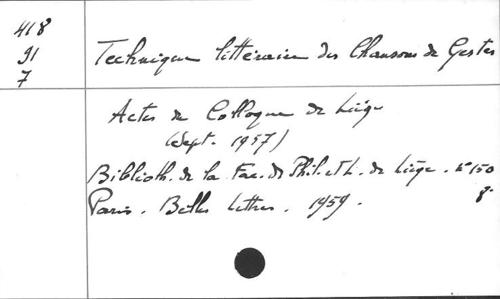 418
91
7
Technique littéraire des Chansons de Gestes
Actes du Colloque de Liège
(Sept. 1957)
Biblioth. de la Fac. de Phil. et L. de Liège. n° 150
Paris. Belles Lettres. 1959. 8°